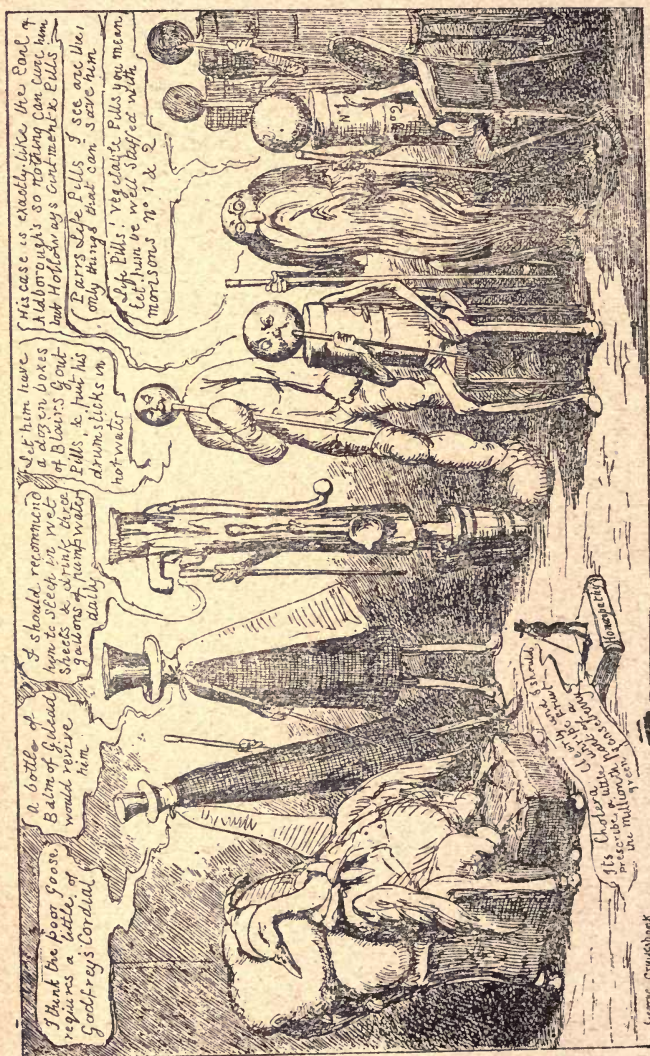 I think the poor Goose
requires a little of
Godfrey's Cordial
a bottle of
Balm of Gilead
would revive
him
I should recommend
him to sleep in wet
Sheets & drink three
gallons of pump water
daily
Let him have
a dozen boxes
of Blairs Gout
Pills & put his
drumsticks in
hot water
His case is exactly like the Earl of
Aldborough's so nothing can cure him
but Holloways Ointment & Pills
Parrs Life Pills I see are the
only things that can save him
Life Pills! Vegetable Pills you mean
let him be well stuffed with
morisons No 1 & 2
No 1
No 2
It's Cholera I should
prescribe a little
the millionth part of a
green
Homeopathy
George Cruikshank